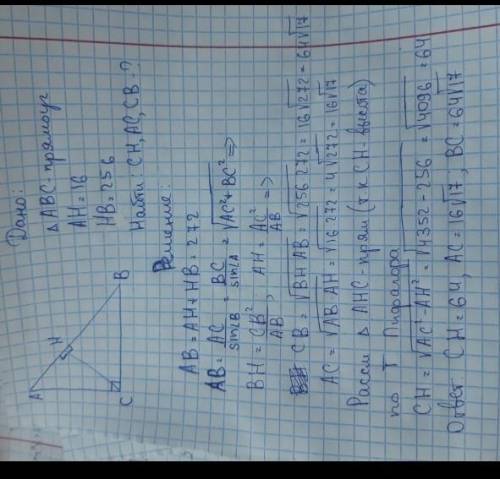 Дано:
△ABC-прямоуг
AH=16
HB=256
Найти: CH, AC, CB-?
A
H
C
B
Решение:
AB = AH + HB = 272
AB = AC/sin∠B = BC/sin∠A = √(AC²+BC²) =>
BH = CB²/AB, AH = AC²/AB =>
CB = √(BH AB) = √(256 272) = 16√272 = 64√17
AC = √(AB AH) = √(16 272) = 4√272 = 16√17
Рассм △ AHC-прям (т к CH-высота)
по Т Пифагора
CH = √(AC²-AH²) = √(4352-256) = √4096 = 64
Ответ CH=64, AC=16√17; BC=64√17